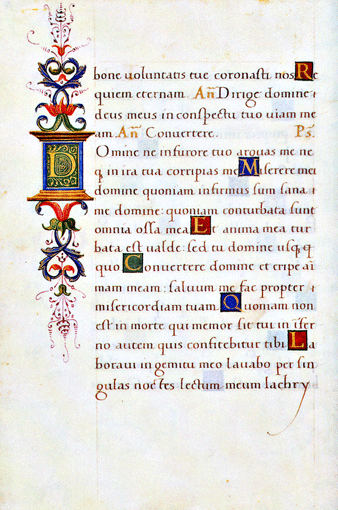 bone uoluntatis tue coronasti nos. Re
quiem eternam. Añ Dirige domine
deus meus in conspectu tuo uiam me
am. Añ Conuertere. Ps.
Domine ne in furore tuo arguas me ne
q; in ira tua corripias me Miserere mei
domine quoniam infirmus sum sana
me domine: quoniam conturbata sunt
omnia ossa mea Et anima mea tur
bata est ualde: sed tu domine usq; q
quo Conuertere domine et eripe ai
mam meam: saluum me fac propter
misericordiam tuam. Quoniam non
est in morte qui memor sit tui in ifer
no autem quis confitebitur tibi. La
boraui in gemitu meo lauabo per sin
gulas noctes lectum meum lachry